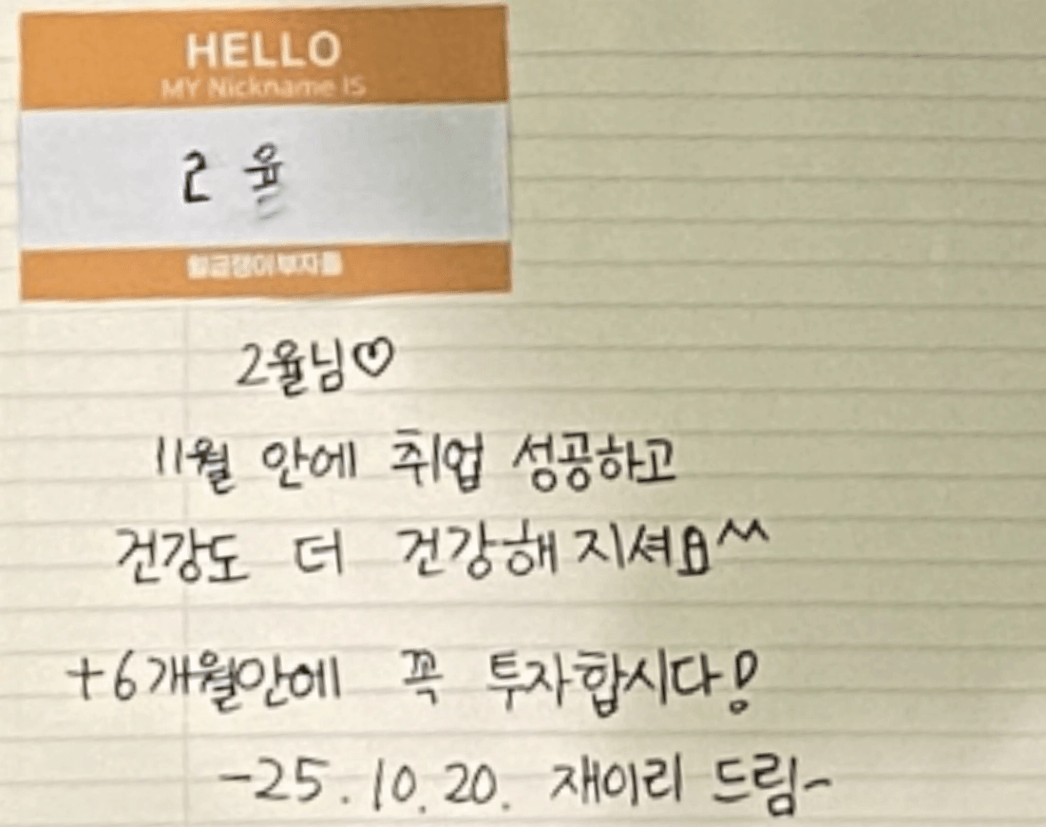 HELLO
MY Nickname IS
2 율
월급쟁이부자들
2율님♡
11월 안에 취업 성공하고
건강도 더 건강해지셔요^^
+6개월안에 꼭 투자합시다!
-25.10.20. 재이리 드림~